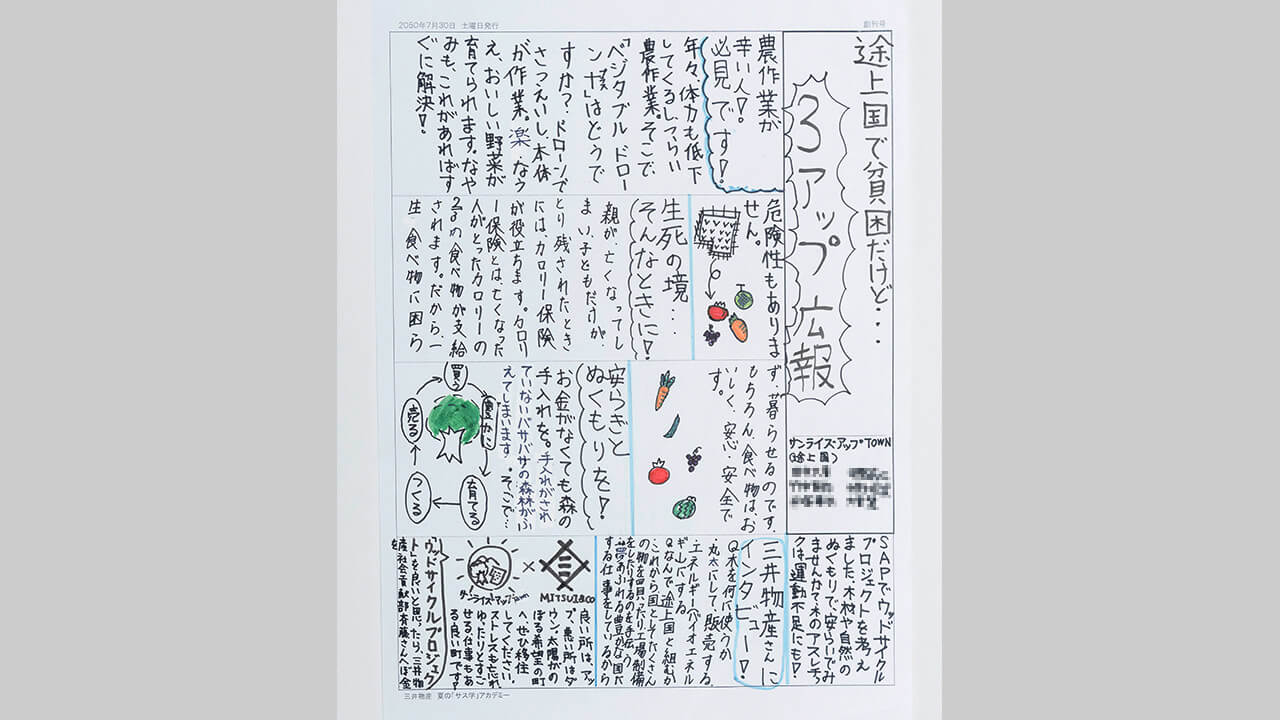 2050年7月30日 土曜日発行
創刊号
途上国で貧困だけど・・・
3アップ広報
サンライズ・アップTOWN
(途上国)
農作業が
辛い人!。
必見です!
年々、体力も低下
してくるし、つらい
農作業。そこで、
「ベジタブルドロー
はどうで
すか?ドローンで
さつえいし、本体
が作業。楽、なう
え、おいしい野菜が
育てられます。なや
みも、これがあればす
ぐに解決!。
危険性もありま
せん。
生死の境...
そんなときに!
親が、亡くなってし
まい、子どもだけが、
とり残されたとき
には、カロリー保険
が役立ちます。カロリ
ー保険とは、亡くなった
人がとったカロリーの
の食べ物が支給
されます。だから、一
生、食べ物に困ら
ず、暮らせるのです。
もちろん、食べ物は、お
いしく、安心・安全で
す。
安らぎと
ぬくもりを!
お金がなくても森の
手入れを。手入れがされ
ていないバサバサの森林がふ
えてしまいます。そこで...
買う
豊かに
育てる
つくる
売る
SAPでウッドサイクル
プロジェクトを考え
ました。木材や自然の
ぬくもりで、安らいでみ
ませんか?木のアスレチッ
クは運動不足にも!
三井物産さんに
インタビュー!
Q木を何に使うか
・丸太にして、販売する。
・エネルギー(バイオエネル
ギー)にする
Qなんで、途上国と組むか
これから国としてたくさん
の物を買ったり工場制備
をしたりするのを手伝う
・夢あふれる豊かな国へ
する仕事をしているから
サンライズ・アップTown
×
MITSUI&CO
良い所は、アッ
プ、悪い所はダ
ウン。太陽がの
ぼる希望の町
へ、ぜひ移住
してください。
ストレスも忘れ
ゆったりとすご
せる仕事もあ
る良い町です!
ウッドサイクルプロジェク
ト」を良いと思ったら、三井物
産社会貢献部斉藤さんへぼ金
を
三井物産 夏の「サス学」アカデミー